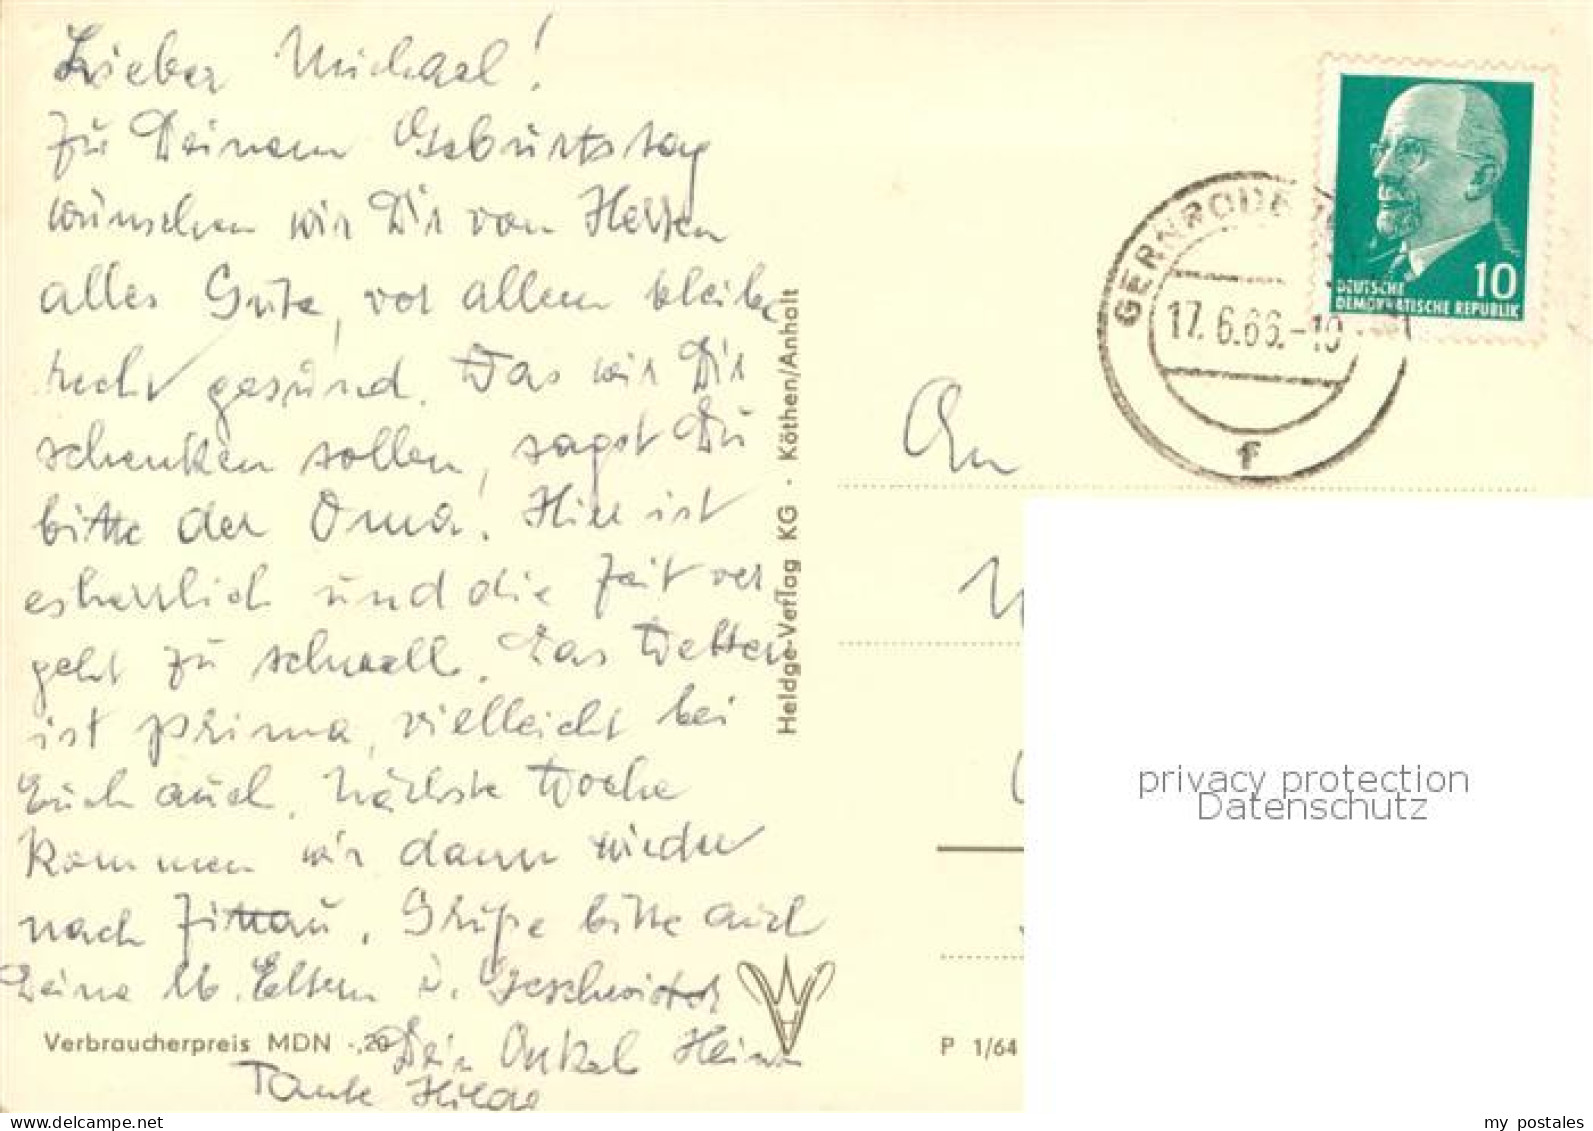 Lieber Michael!
Zu Deinem Geburtstag
wünschen wir Dir von Herzen
alles Gute, vor allem bleibe
recht gesund. Was wir Dir
schenken sollen, sagst Du
bitte der Oma. Hier ist
es herrlich und die Zeit ver
geht zu schnell. Das Wetter
ist prima, vielleicht bei
Euch auch. Nächste Woche
kommen wir dann wieder
nach Zittau. Grüße bitte auch
Deine lb. Eltern u. Geschwister
Dein Onkel Heinz
Tante Hilde
Verbraucherpreis MDN -,20
Heldge-Verlag KG · Köthen/Anhalt
GERNRODE
17.6.66.-10
f
10
DEUTSCHE
DEMOKRATISCHE REPUBLIK
An
P 1/64
privacy protection
Datenschutz
delcampe.net
my postales